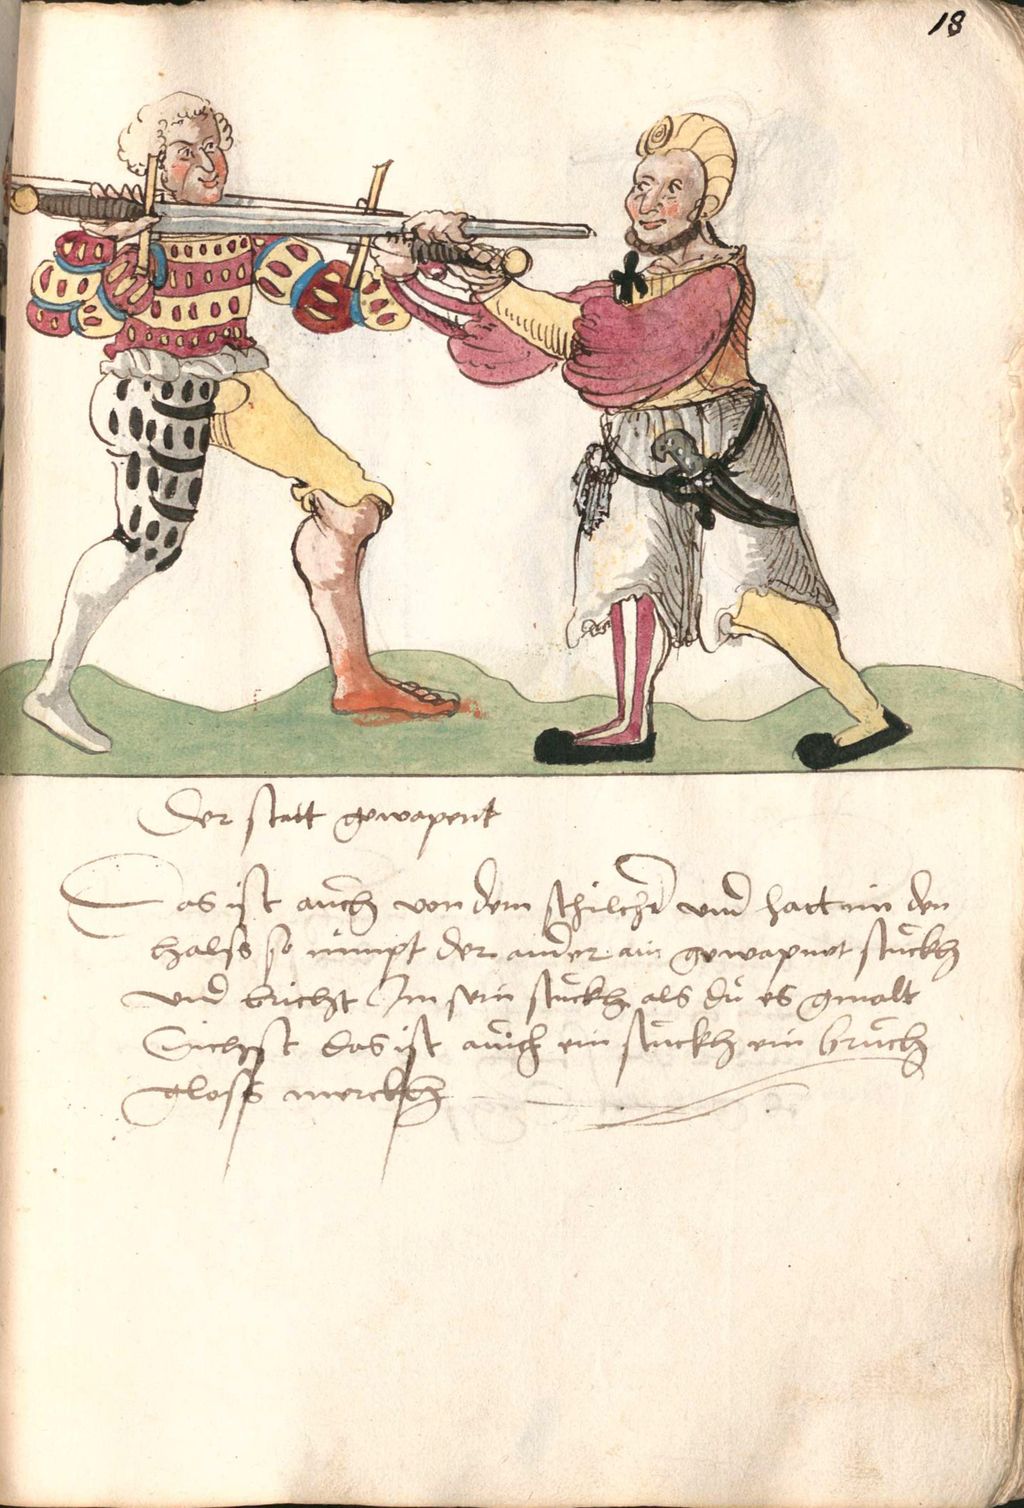 18
Der statt gewapent
Das ist auch von dem schilcher vnd hatt im den
halss so nimpt der ander ain gewapnet stuckh
vnd bricht Im sein stuckh als du es gmalt
Sichst das ist auch ein stuckh ein bruch
gloss merckh